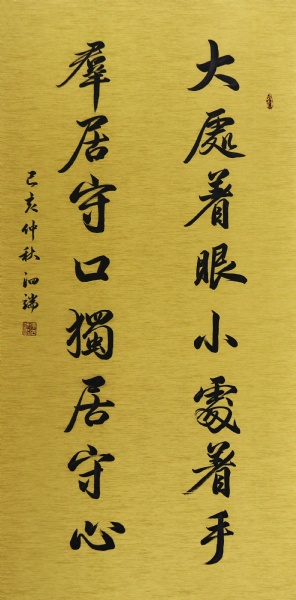 大處着眼小處着手
羣居守口獨居守心
己亥仲秋